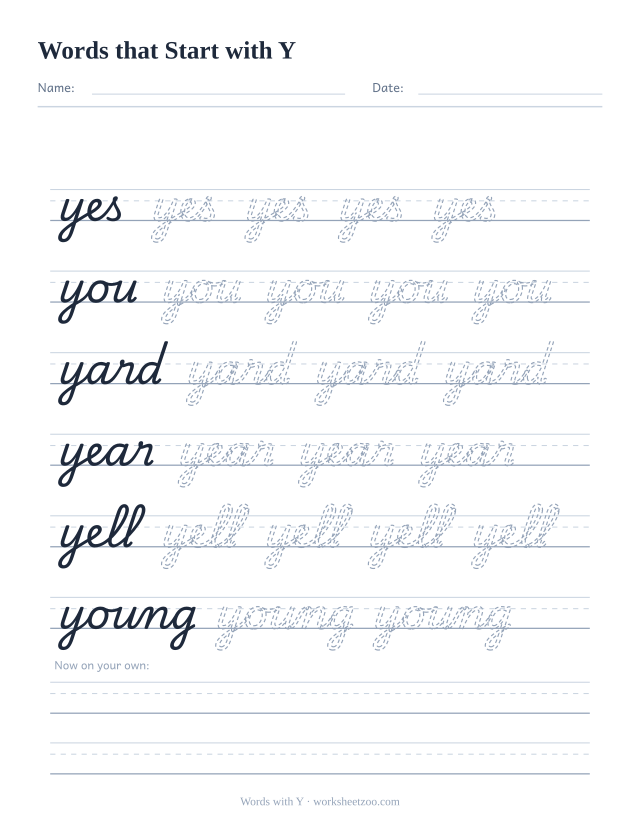 Words that Start with Y
Name: Date:
yes yes yes yes yes
you you you you you
yard yard yard yard
year year year year
yell yell yell yell yell
young young young
Now on your own:
Words with Y · worksheetzoo.com